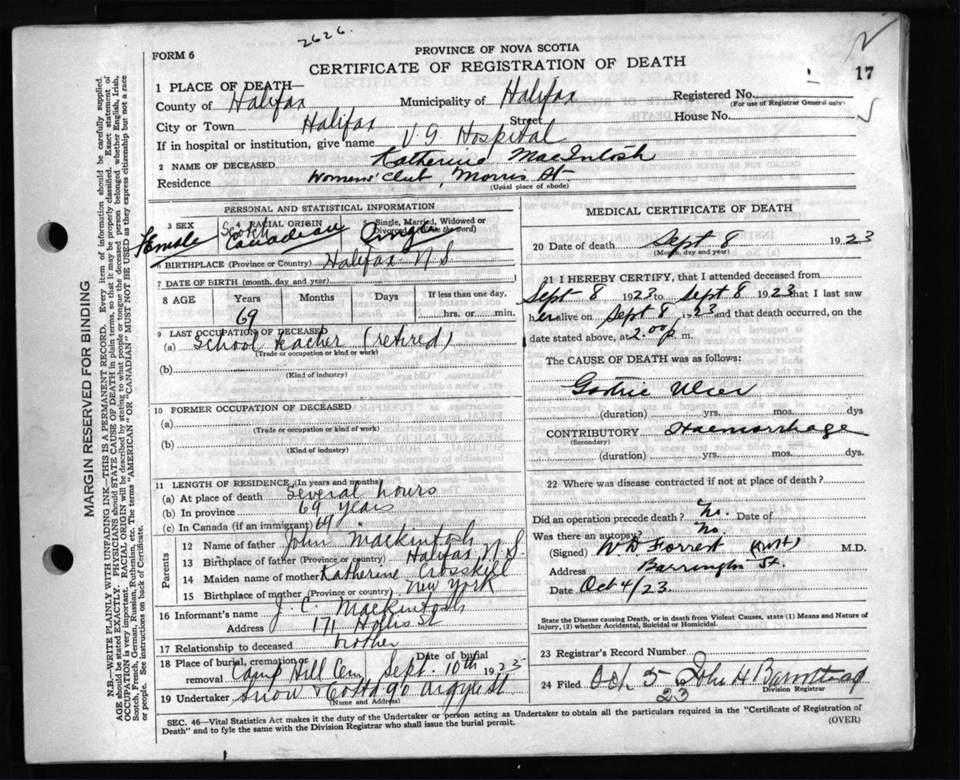 2626.
FORM 6
PROVINCE OF NOVA SCOTIA
CERTIFICATE OF REGISTRATION OF DEATH
17
1 PLACE OF DEATH—
County of Halifax Municipality of Halifax Registered No.
(For use of Registrar General only)
City or Town Halifax Street House No.
If in hospital or institution, give name V G Hospital
2 NAME OF DECEASED Katherine MacIntosh
Residence Womens' Club, Morris St.
(Usual place of abode)
PERSONAL AND STATISTICAL INFORMATION
3 SEX 4 RACIAL ORIGIN 5 Single, Married, Widowed or Divorced (write the word)
Female Scotch Canadian Single
6 BIRTHPLACE (Province or Country) Halifax N S
7 DATE OF BIRTH (month, day and year)
8 AGE Years Months Days If less than one day,
69 hrs. or min.
9 LAST OCCUPATION OF DECEASED
(a) School teacher (retired)
(Trade or occupation or kind of work)
(b)
(Kind of industry)
10 FORMER OCCUPATION OF DECEASED
(a)
(Trade or occupation or kind of work)
(b)
(Kind of industry)
11 LENGTH OF RESIDENCE (In years and months)
(a) At place of death Several hours
(b) In province 69 years
(c) In Canada (if an immigrant) 69 "
Parents
12 Name of father John Mackintosh
13 Birthplace of father (Province or country) Halifax N.S.
14 Maiden name of mother Katherine Crosskill
15 Birthplace of mother (Province or country) New York
16 Informant's name J. C. Mackintosh
Address 171 Hollis St
17 Relationship to deceased brother
18 Place of burial, cremation or removal Camp Hill Cem Date of burial Sept. 10th 1923
19 Undertaker Snow & Co Ltd 90 Argyle St
(Name and Address)
MEDICAL CERTIFICATE OF DEATH
20 Date of death Sept 8 1923
(Month, day and year)
21 I HEREBY CERTIFY, that I attended deceased from
Sept 8 1923 to Sept 8 1923 that I last saw
her alive on Sept 8 1923 and that death occurred, on the
date stated above, at 2.00 p. m.
The CAUSE OF DEATH was as follows:
Gastric Ulcer
(duration) yrs. mos. dys
CONTRIBUTORY Haemorrhage
(Secondary)
(duration) yrs. mos. dys.
22 Where was disease contracted if not at place of death?
Did an operation precede death? No. Date of
Was there an autopsy? No.
(Signed) W D Forrest M.D.
Address Barrington St.
Date Oct 4/23.
State the Disease causing Death, or in death from Violent Causes, state (1) Means and Nature of Injury, (2) whether Accidental, Suicidal or Homicidal.
23 Registrar's Record Number
24 Filed Oct 5 1923 John H
Division Registrar
SEC. 46—Vital Statistics Act makes it the duty of the Undertaker or person acting as Undertaker to obtain all the particulars required in the "Certificate of Registration of
Death" and to fyle the same with the Division Registrar who shall issue the burial permit.
(OVER)
MARGIN RESERVED FOR BINDING
N.B.—WRITE PLAINLY WITH UNFADING INK—THIS IS A PERMANENT RECORD. Every item of information should be carefully supplied.
AGE should be stated EXACTLY. PHYSICIANS should STATE CAUSE OF DEATH in plain terms, so that it may be properly classified. Exact statement of
OCCUPATION is very important. RACIAL ORIGIN will be described by stating to what people or tongue the deceased person belonged whether English, Irish,
Scotch, French, German, Russian, Ruthenian, etc. The terms "AMERICAN" OR "CANADIAN" MUST NOT BE USED as they express citizenship but not a race
or people. See instructions on back of Certificate.